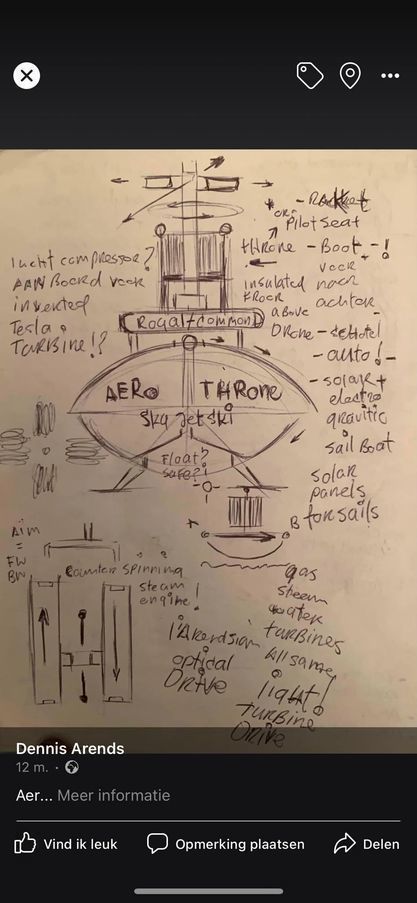 - Rakket
or:
Pilot seat
throne - Boot - !
voor
insulated naar
kroon achter
above
Drone - schotel
- auto! -
- solar +
electro
gravitic
sail Boat
solar
panels
for sails
lucht compressor?
AAN Boord voor
inverted
Tesla
Turbine!?
Royal + common
AERO THRONE
Sky Jetski
Float?
safe?!
A B
Aim
=
FW
BW
Counter spinning
steam
engine!
l'Arendsian
optical
Drive
gas
steam
water
turbines
All same
light!
turbine
Drive
Dennis Arends
12 m. ·
Aer... Meer informatie
Vind ik leuk Opmerking plaatsen Delen